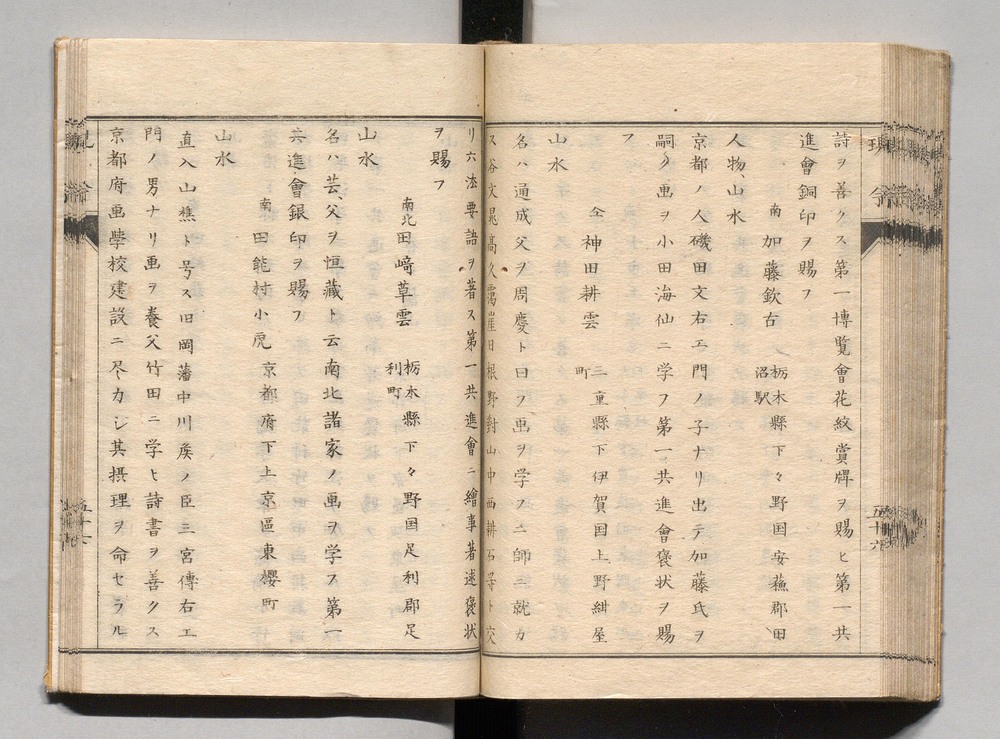 詩ヲ善クス第一博覧會花紋賞牌ヲ賜ヒ第一共
進會銅印ヲ賜フ
南 加藤欽古 栃木縣下々野国安蘓郡田
沼駅
人物、山水
京都ノ人磯田文右エ門ノ子ナリ出テ加藤氏ヲ
嗣ク画ヲ小田海仙ニ学フ第一共進會褒状ヲ賜
フ
仝 神田耕雲 三重縣下伊賀国上野紺屋
町
山水
名ハ通成父ヲ周慶ト曰フ画ヲ学フニ師ニ就カ
ス谷文晁高久靄崖日根野對山中西耕石等ト交
リ六法要語ヲ著ス第一共進會ニ繪事著述褒状
ヲ賜フ
南北 田﨑草雲 栃木縣下々野国足利郡足
利町
山水
名ハ芸、父ヲ恒藏ト云南北諸家ノ画ヲ学ス第一
共進會銀印ヲ賜フ
南 田能村小虎 京都府下上京區東櫻町
山水
直入山樵ト号ス旧岡藩中川矦ノ臣三宮傳右エ
門ノ男ナリ画ヲ養父竹田ニ学ヒ詩書ヲ善クス
京都府画學校建設ニ尽力シ其摂理ヲ命セラル